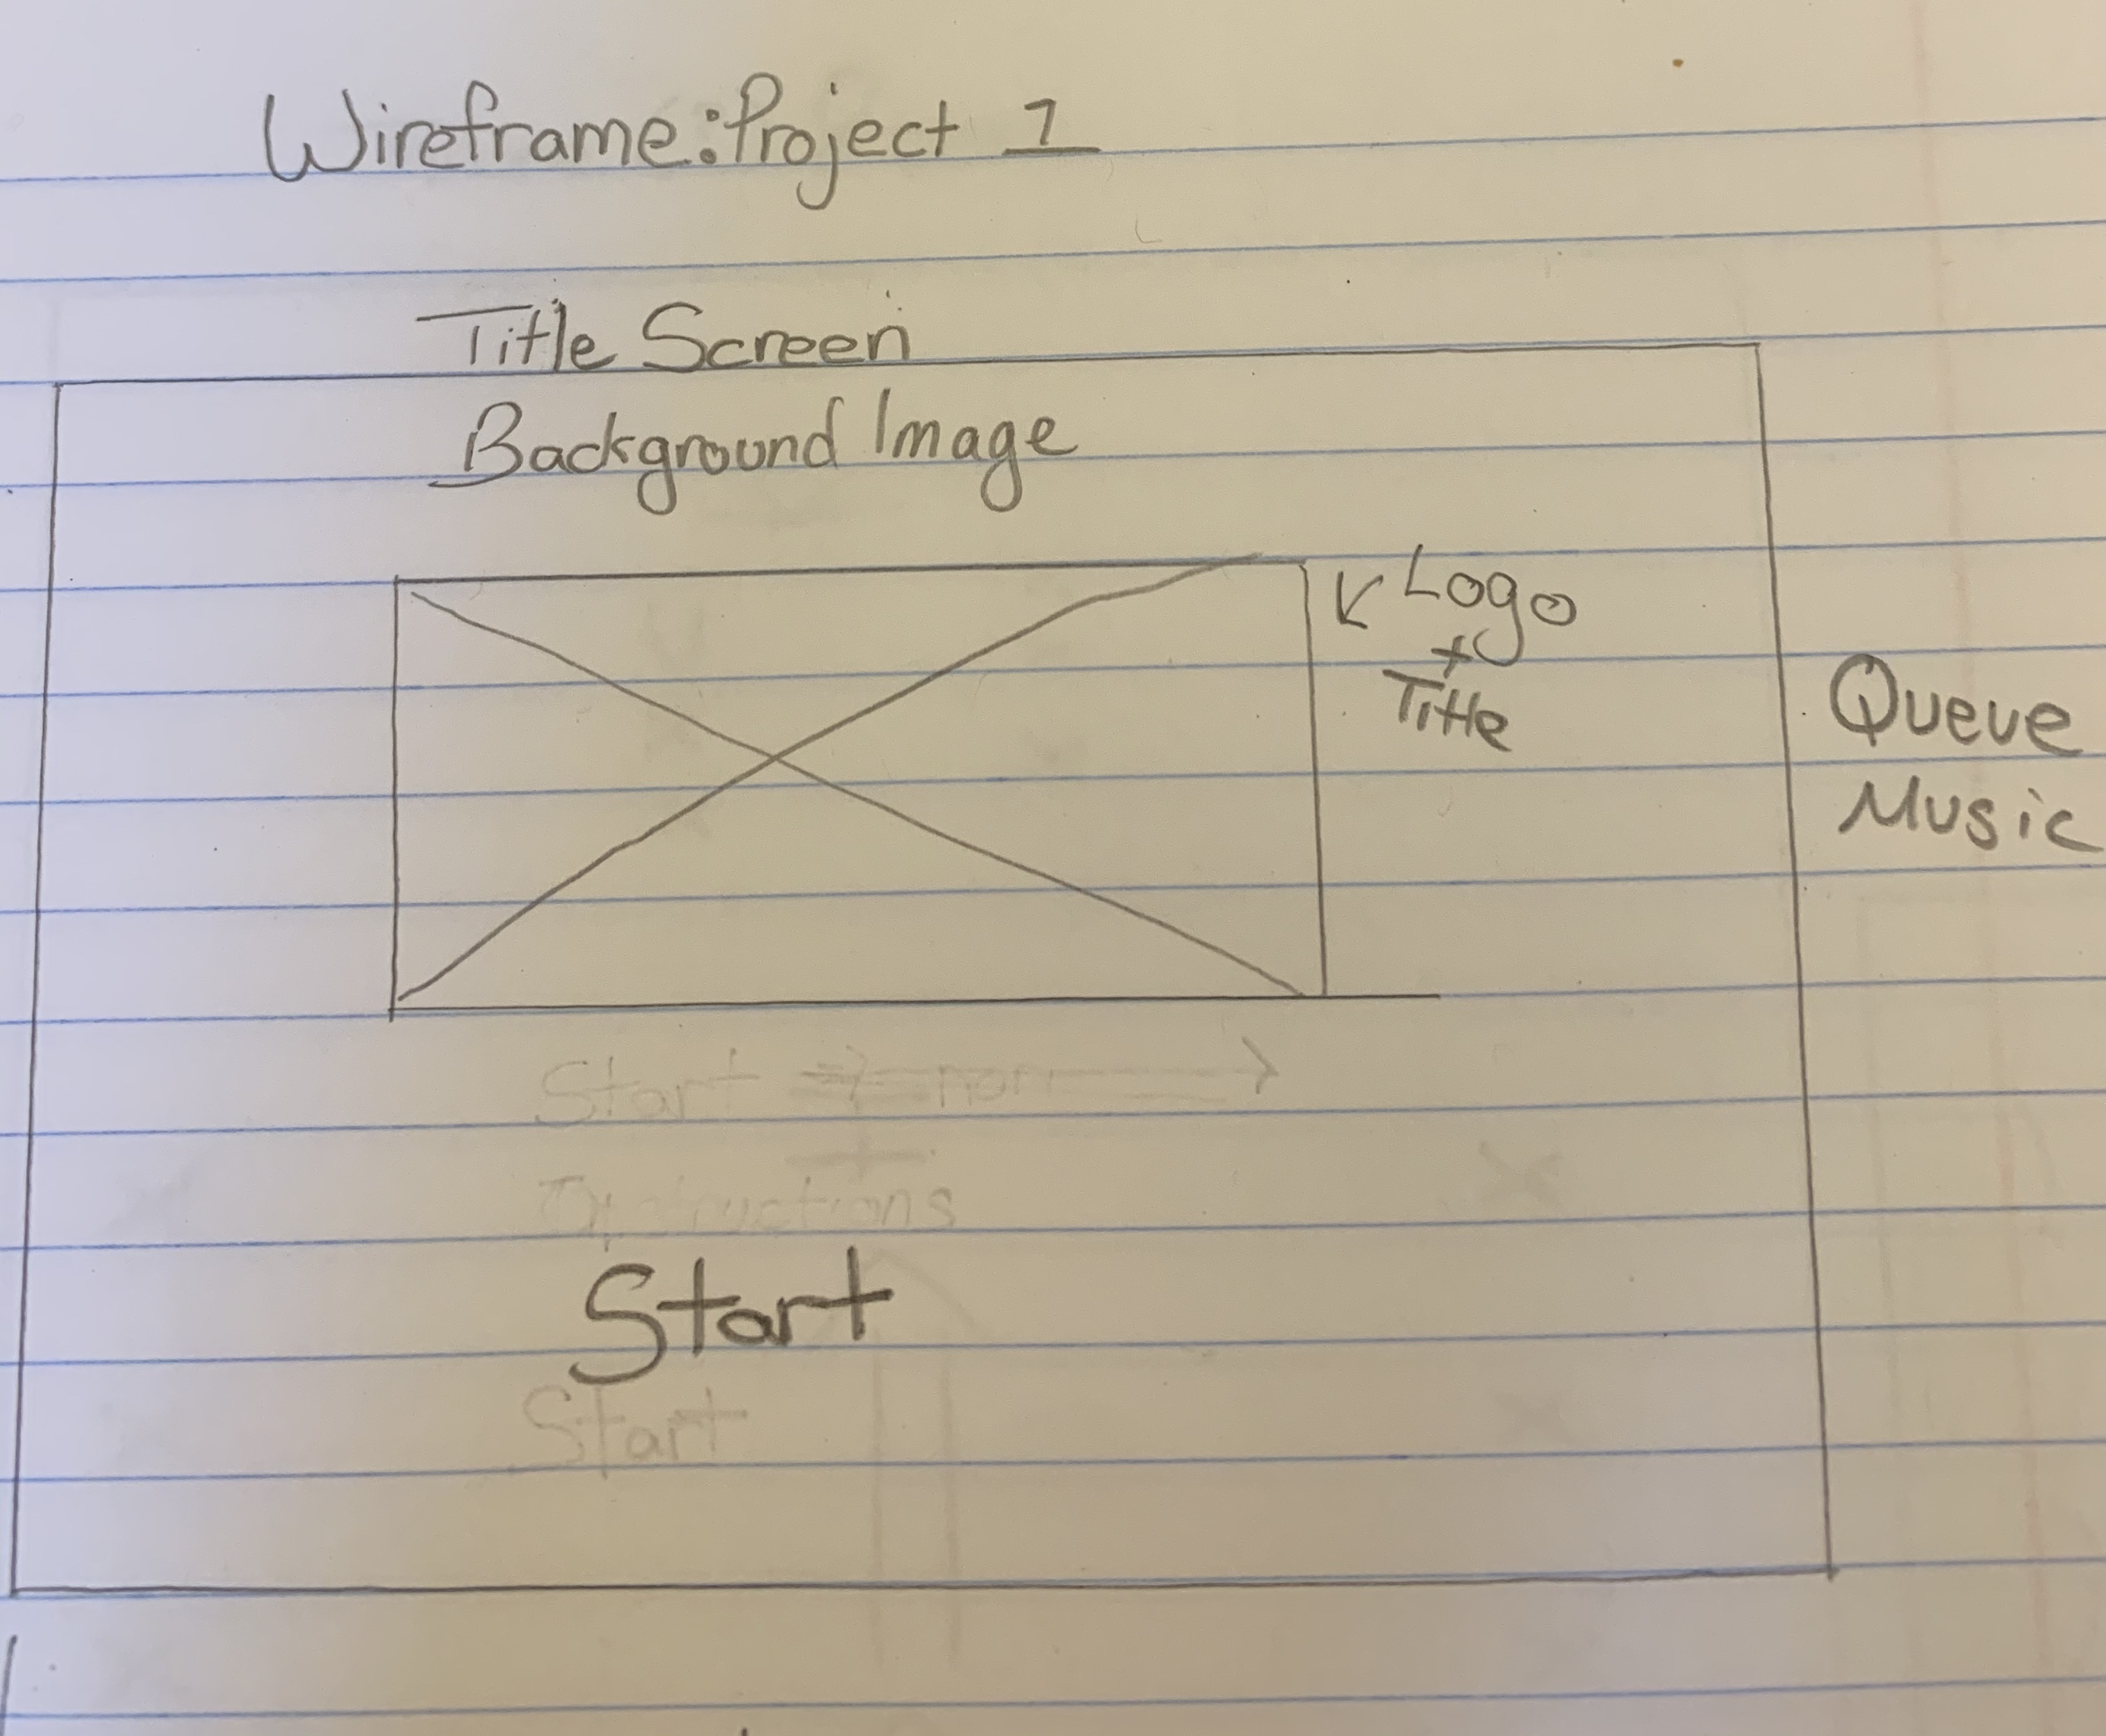 Wireframe: Project 1
Title Screen
Background Image
Logo
+
Title
Queue
Music
Start
Instructions
Start
Start